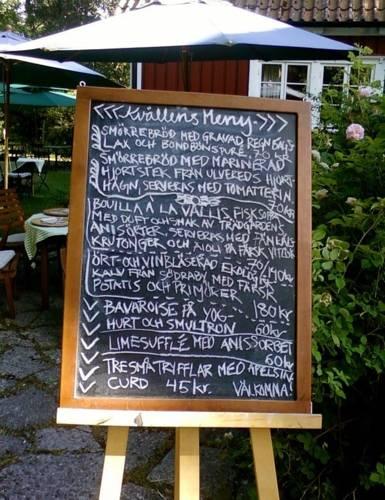 Kvällens Meny
SMÖRREBRÖD MED GRAVAD REGNBÅGS
LAX OCH BONDBÖNSPURÉ, 70 kr
SMÖRREBRÖD MED MARINERAD
HJORTSTEK FRÅN ULVEREDS HJORT-
HÄGN, SERVERAS MED TOMATTERRIN
70 kr
BOUILLA A LA VALLIS FISKSOPPA
MED DOFT OCH SMAK AV TRÄDGÅRDENS
ANISÖRTER. SERVERAS MED FÄNKÅLS-
KRUTONGER OCH AIOLI PÅ FÄRSK VITLÖK
70/140kr
ÖRT- OCH VINBLÅSERAD EKOLOGISK
KALV FRÅN SÖDRABY MED FÄRSK
POTATIS OCH PRIMÖRER
180 kr
BAVAROISE PÅ YOG-
HURT OCH SMULTRON 60kr
LIMESUFFLÉ MED ANISSORBET
60kr
TRE SMÅ TRYFFLAR MED APELSIN-
CURD 45 kr. VÄLKOMNA!